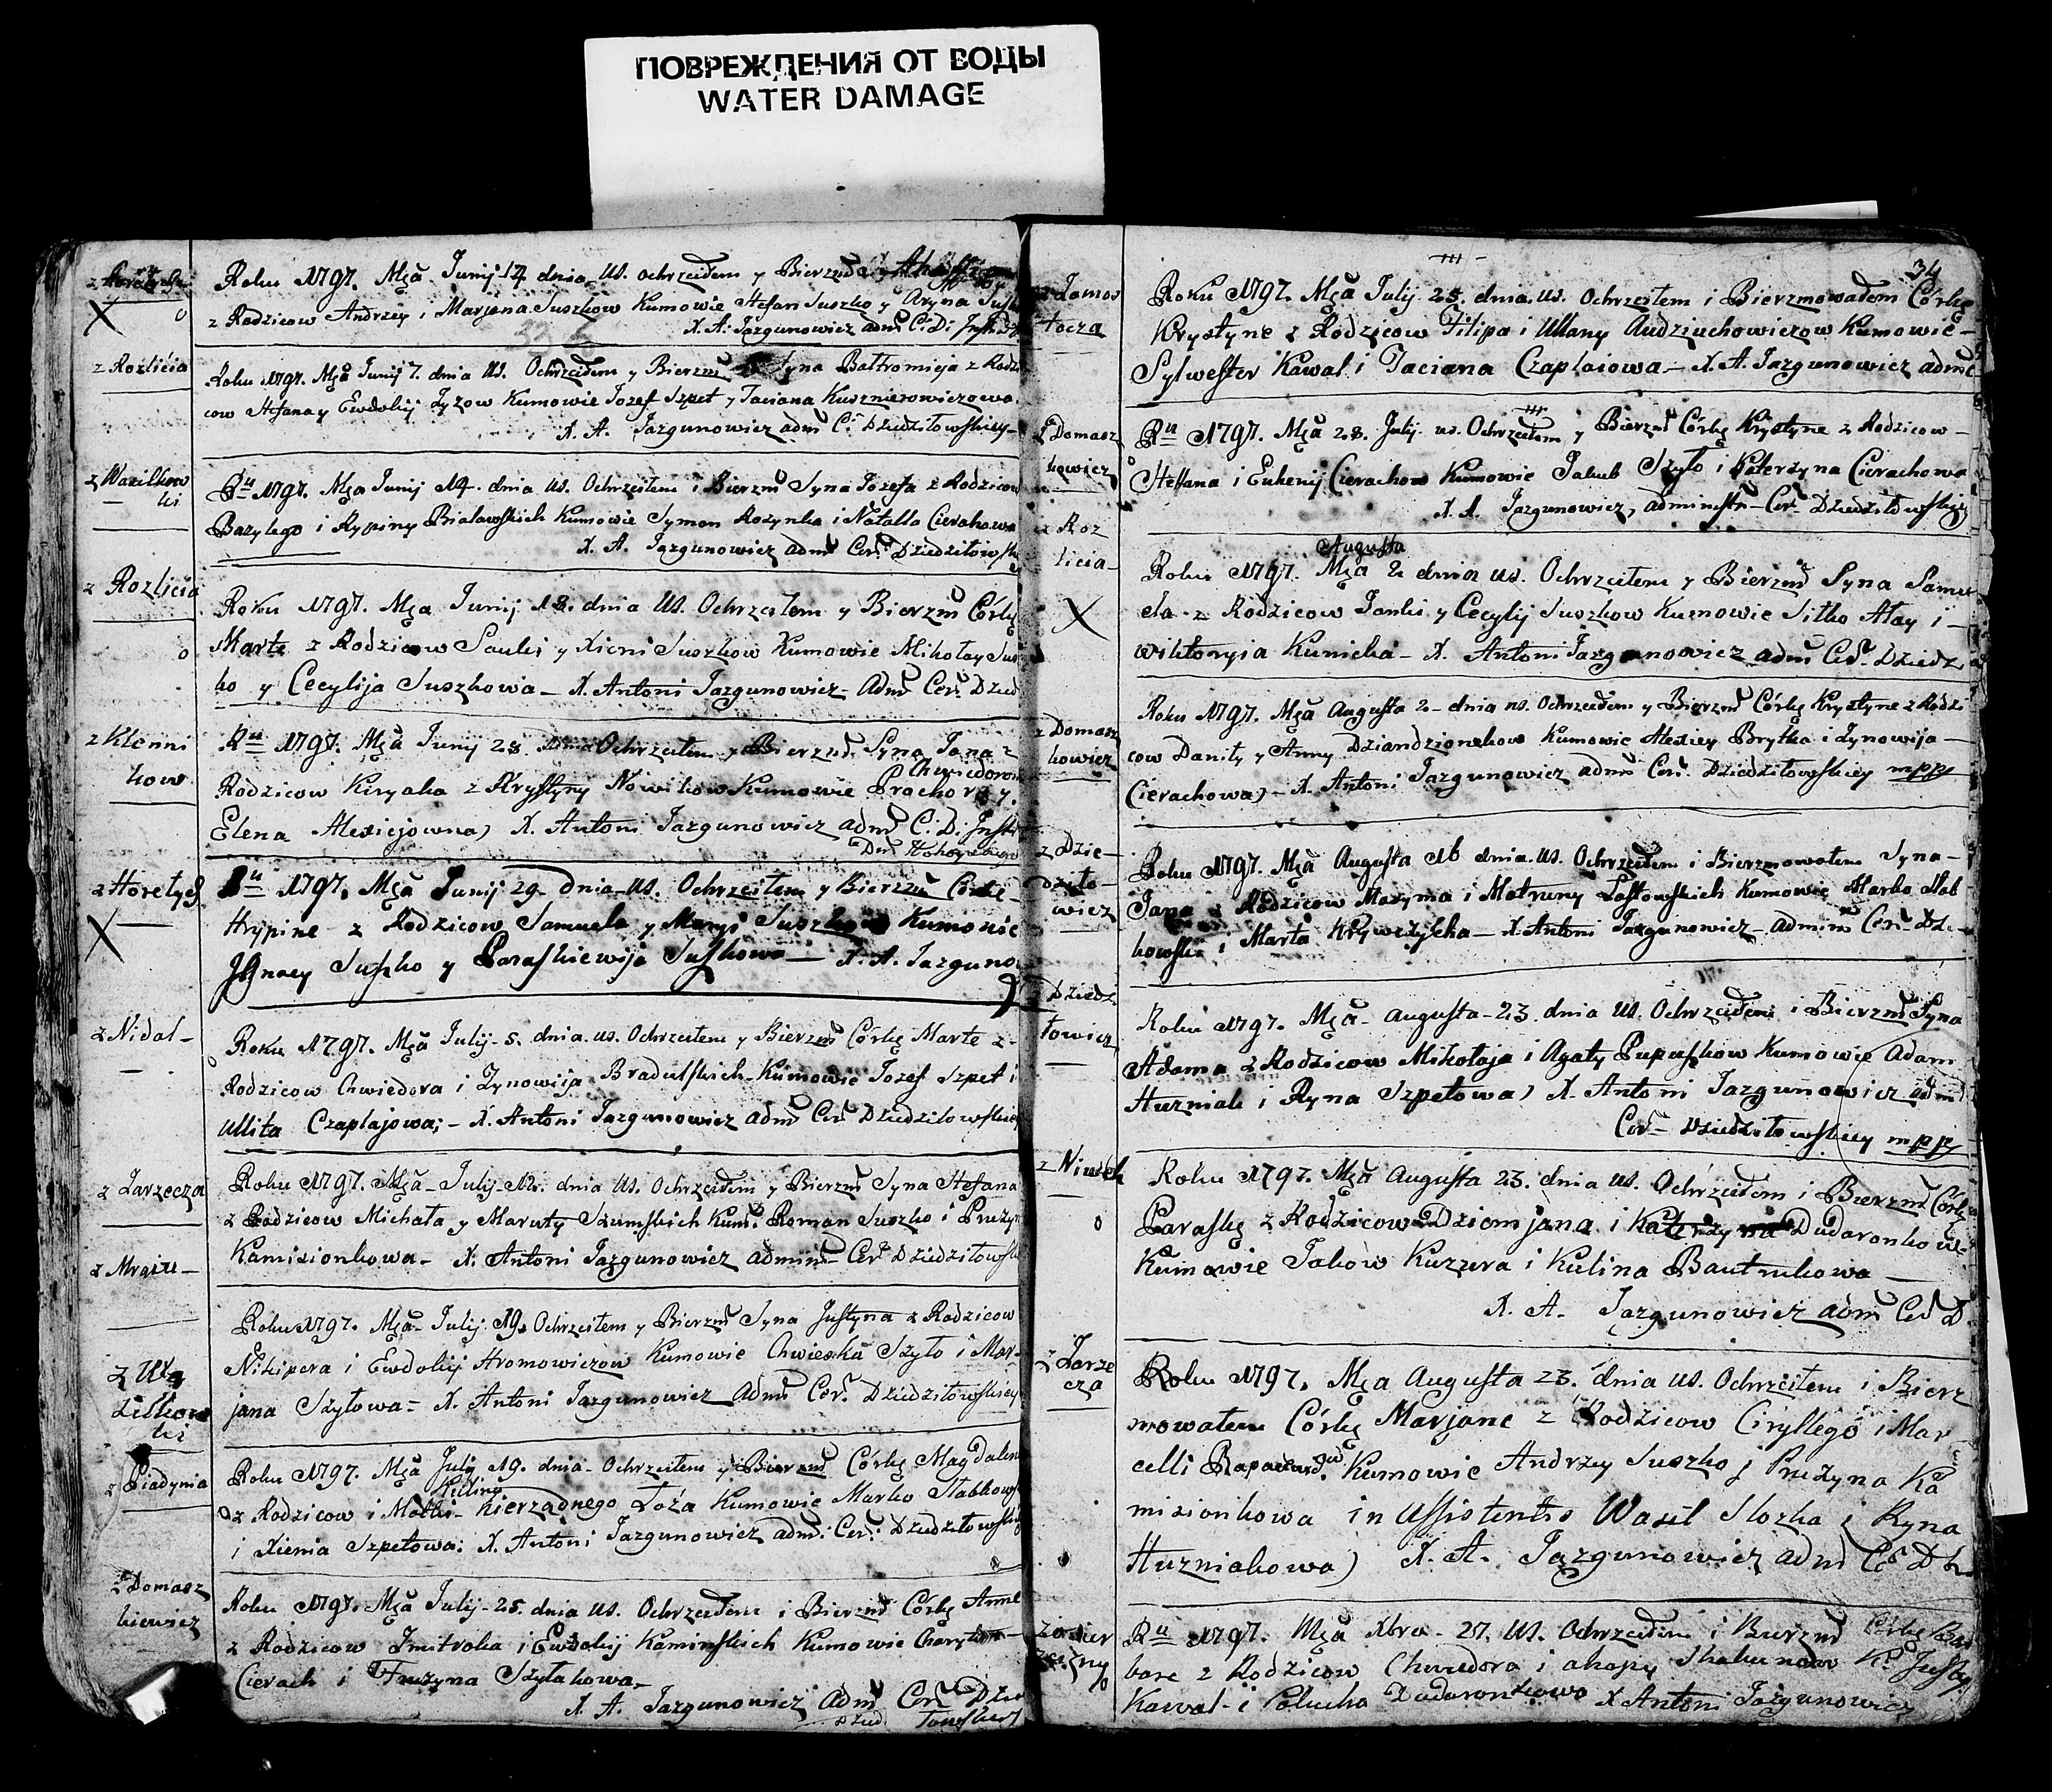 ПОВРЕЖДЕНИЯ ОТ ВОДЫ
WATER DAMAGE
Roku 1797. Mca Junij 14 dnia. us. ochrzciłem y Bierzm
z Rodzicow Andrzey i Marjana Suszkow Kumowie Stefan Suszko y Aryna
X. A. Jazgunowicz adm C: D:
z Rozlicia
Roku 1797. Mca Junij 7. dnia us. Ochrzciłem y Bierzm Syna Bałtromieja z Rodzi
cow Stefana y Ewdokij Łyzow Kumowie Jozef Szpet y Taciana Kusznierowiczowa.
X. A. Jazgunowicz adm C. Dziedziłowskiey
z Wasilkow
ki
Ru 1797. Mca Junij 14. dnia us. Ochrzciłem i Bierzm Syna Jozefa z Rodzicow
Bazylego i Rypiny Białowskich Kumowie Symon Rozynka i Natalla Cierachowa
X. A. Jazgunowicz adm Cer. Dziedziłows
z Rozlicia
Roku 1797. Mca Junij 18. dnia us. Ochrzciłem y Bierzm Córkę
Marte z Rodzicow Sauki y Xieni Suszkow Kumowie Mikołay Sus
ko y Cecylija Suszkowa – X. Antoni Jazgunowicz – Adm Cer. Dzied
z Klenni
kow
Ru 1797. Mca Juny 28. Ochrzciłem y Bierzm. Syna Jana z
Chwiedorow
Rodzicow Kiryaka z Krystyny Nowikow Kumowie Prachor y.
Elena Alexiejowna) X. Antoni Jazgunowicz adm C: D:
z Horełych
Ru 1797. Mca Junij 29 – dnia us. Ochrzciłem y Bierzm Córke
Hrypine z Rodzicow Samuela y Maryi Suszkow Kumowie
Jgnacy Suszko y Paraskiewija Suszkowa — X. A. Jazguno
z Nidal –
Roku 1797. Mca Julij – 5. dnia. us. Ochrzciłem y Bierzm Córkę Marte z –
Rodzicow Chwiedora i Zynowija Bradulskich – Kumowie Jozef Szpet i
Ullita Czaplajowa; – X. Antoni Jazgunowicz adm Cer Dziedziłowskiey
z Zarzecza
Roku 1797. Mca – Julij – 12. dnia us. Ochrzciłem y Bierzm Syna Stefana
z Rodzicow Michała y Maruty Szumskich Kum: Roman Suszko i Pruzyn
Kamizionkowa – X. Antoni Jazgunowicz admin – Cer Dziedziłows
z Mraiu –
Roku 1797. Mca – Julij 19. Ochrzciłem y Bierzm Syna Justyna z Rodzicow
Nikipera i Ewdokij Hromowiczow Kumowie Chwieśka Szyło i Mar –
jana Szyłowa – X. Antoni Jazgunowicz Adm Cer. Dziedziłowskiey
z Piadynia
Roku 1797. Mca Julij 19. dnia – Ochrzciłem y Bierzm Córkę Magdalene
Kulina
z Rodzicow i Matki – Nierządnego Łoźa Kumowie Marko Słabkows
i Xienia Szpetowa: X. Antoni Jazgunowicz adm: Cer: Dziedziłowskiey
z Domasz
kiewicz
Roku 1797. Mca Julij – 25. dnia us. Ochrzciłem i Bierzm Córkę Anne
z Rodzicow Jmitroka i Ewdokij Kaminskich Kumowie Charyton –
Cierach i Fruzyna Szyłakowa –
X. A. Jazgunowicz Adm Cer Dzie
34
z Zamos
tocza
Roku 1797. Mca Julij 25. dnia. us. Ochrzciłem i Bierzmowałem Córkę
Krystyne z Rodzicow Filipa i Ullany Audziuchowiczow Kumowie –
Sylwester Kawal i Taciana Czaplaiowa – X. A. Jazgunowicz adm
z Domasz
kowicz
Ru 1797. Mca 28. Julij us. Ochrzciłem y Bierzm Córkę Krystyne z Rodzicow –
Steffana i Euhenij Cierachow Kumowie Jakub Szyło i Katerzyna Cierachowa
X. A. Jazgunowicz, administr – Cer. Dziedziłowskiey
z Roz
licia –
Augusta
Roku 1797. Mca 2 dnia us. Ochrzciłem y Bierzm Syna Samu
ela z Rodzicow Janki y Cecylij Suszkow Kumowie Sitko Ałay i –
Wiktoryia Kunicka – X. Antoni Jazgunowicz adm Cer. Dziedz
z Domasz
kowicz
Roku 1797. Mca Augusta 2 – dnia us. Ochrzciłem y Bierzm Córkę Krystyne z Rodzi
cow Daniły y Anny Dziandzionkow Kumowie Alexiey Brytka i Zynowija –
Cierachowa) – X. Antoni Jazgunowicz adm Cer. Dziedziłowskiey mpp
z Dzie –
dziło –
wicz
Roku 1797. Mca Augusta 16 dnia. us. Ochrzciłem i Bierzmowałem Syna –
Jana z Rodzicow Maxyma i Matruny Łastowskich Kumowie Marko Słab
kowski i Marta Krywczycha – X. Antoni Jazgunowicz – admin Cer – Dz. –
Dziedzi
łowicz
Roku 1797. Mca – Augusta – 23. dnia us. Ochrzciłem i Bierzm Syna
Adama z Rodzicow Mikołaja i Agaty Pupuszkow Kumowie Adam
Huzniak i Ryna Szpetowa) X. Antoni Jazgunowicz adm
Cer – Dziedziłowskiey mpp
Roku 1797. Mca Augusta 23. dnia us. Ochrzciłem i Bierzm Córkę
Paraskę z Rodzicow Dziemjana i Katerzyna Dudaronkow –
Kumowie Jakow Kuzura i Kulina Bautrukowa —
X. A. Jazgunowicz adm Cer D
z Zarze
cza
Roku 1797. Mca Augusta 23. dnia us. Ochrzciłem i Bierz
mowałem Córkę Marjane z Rodzicow Cyryllego i Mar –
celli Kumowie Andrzey Suszko j Pruzyna Ka
mizionkowa in Assistentis Wasil Slozka i Ryna
Huzniakowa) X. A. Jazgunowicz adm C. Dz
Ru 1797. Mca Xbra – 27. us. Ochrzciłem i Bierzm Córkę Bar
bare z Rodzicow Chwiedora i ahapy Skakunow K.
Kawal i Połucha Dudaronkowa X Antoni Jazgunowicz